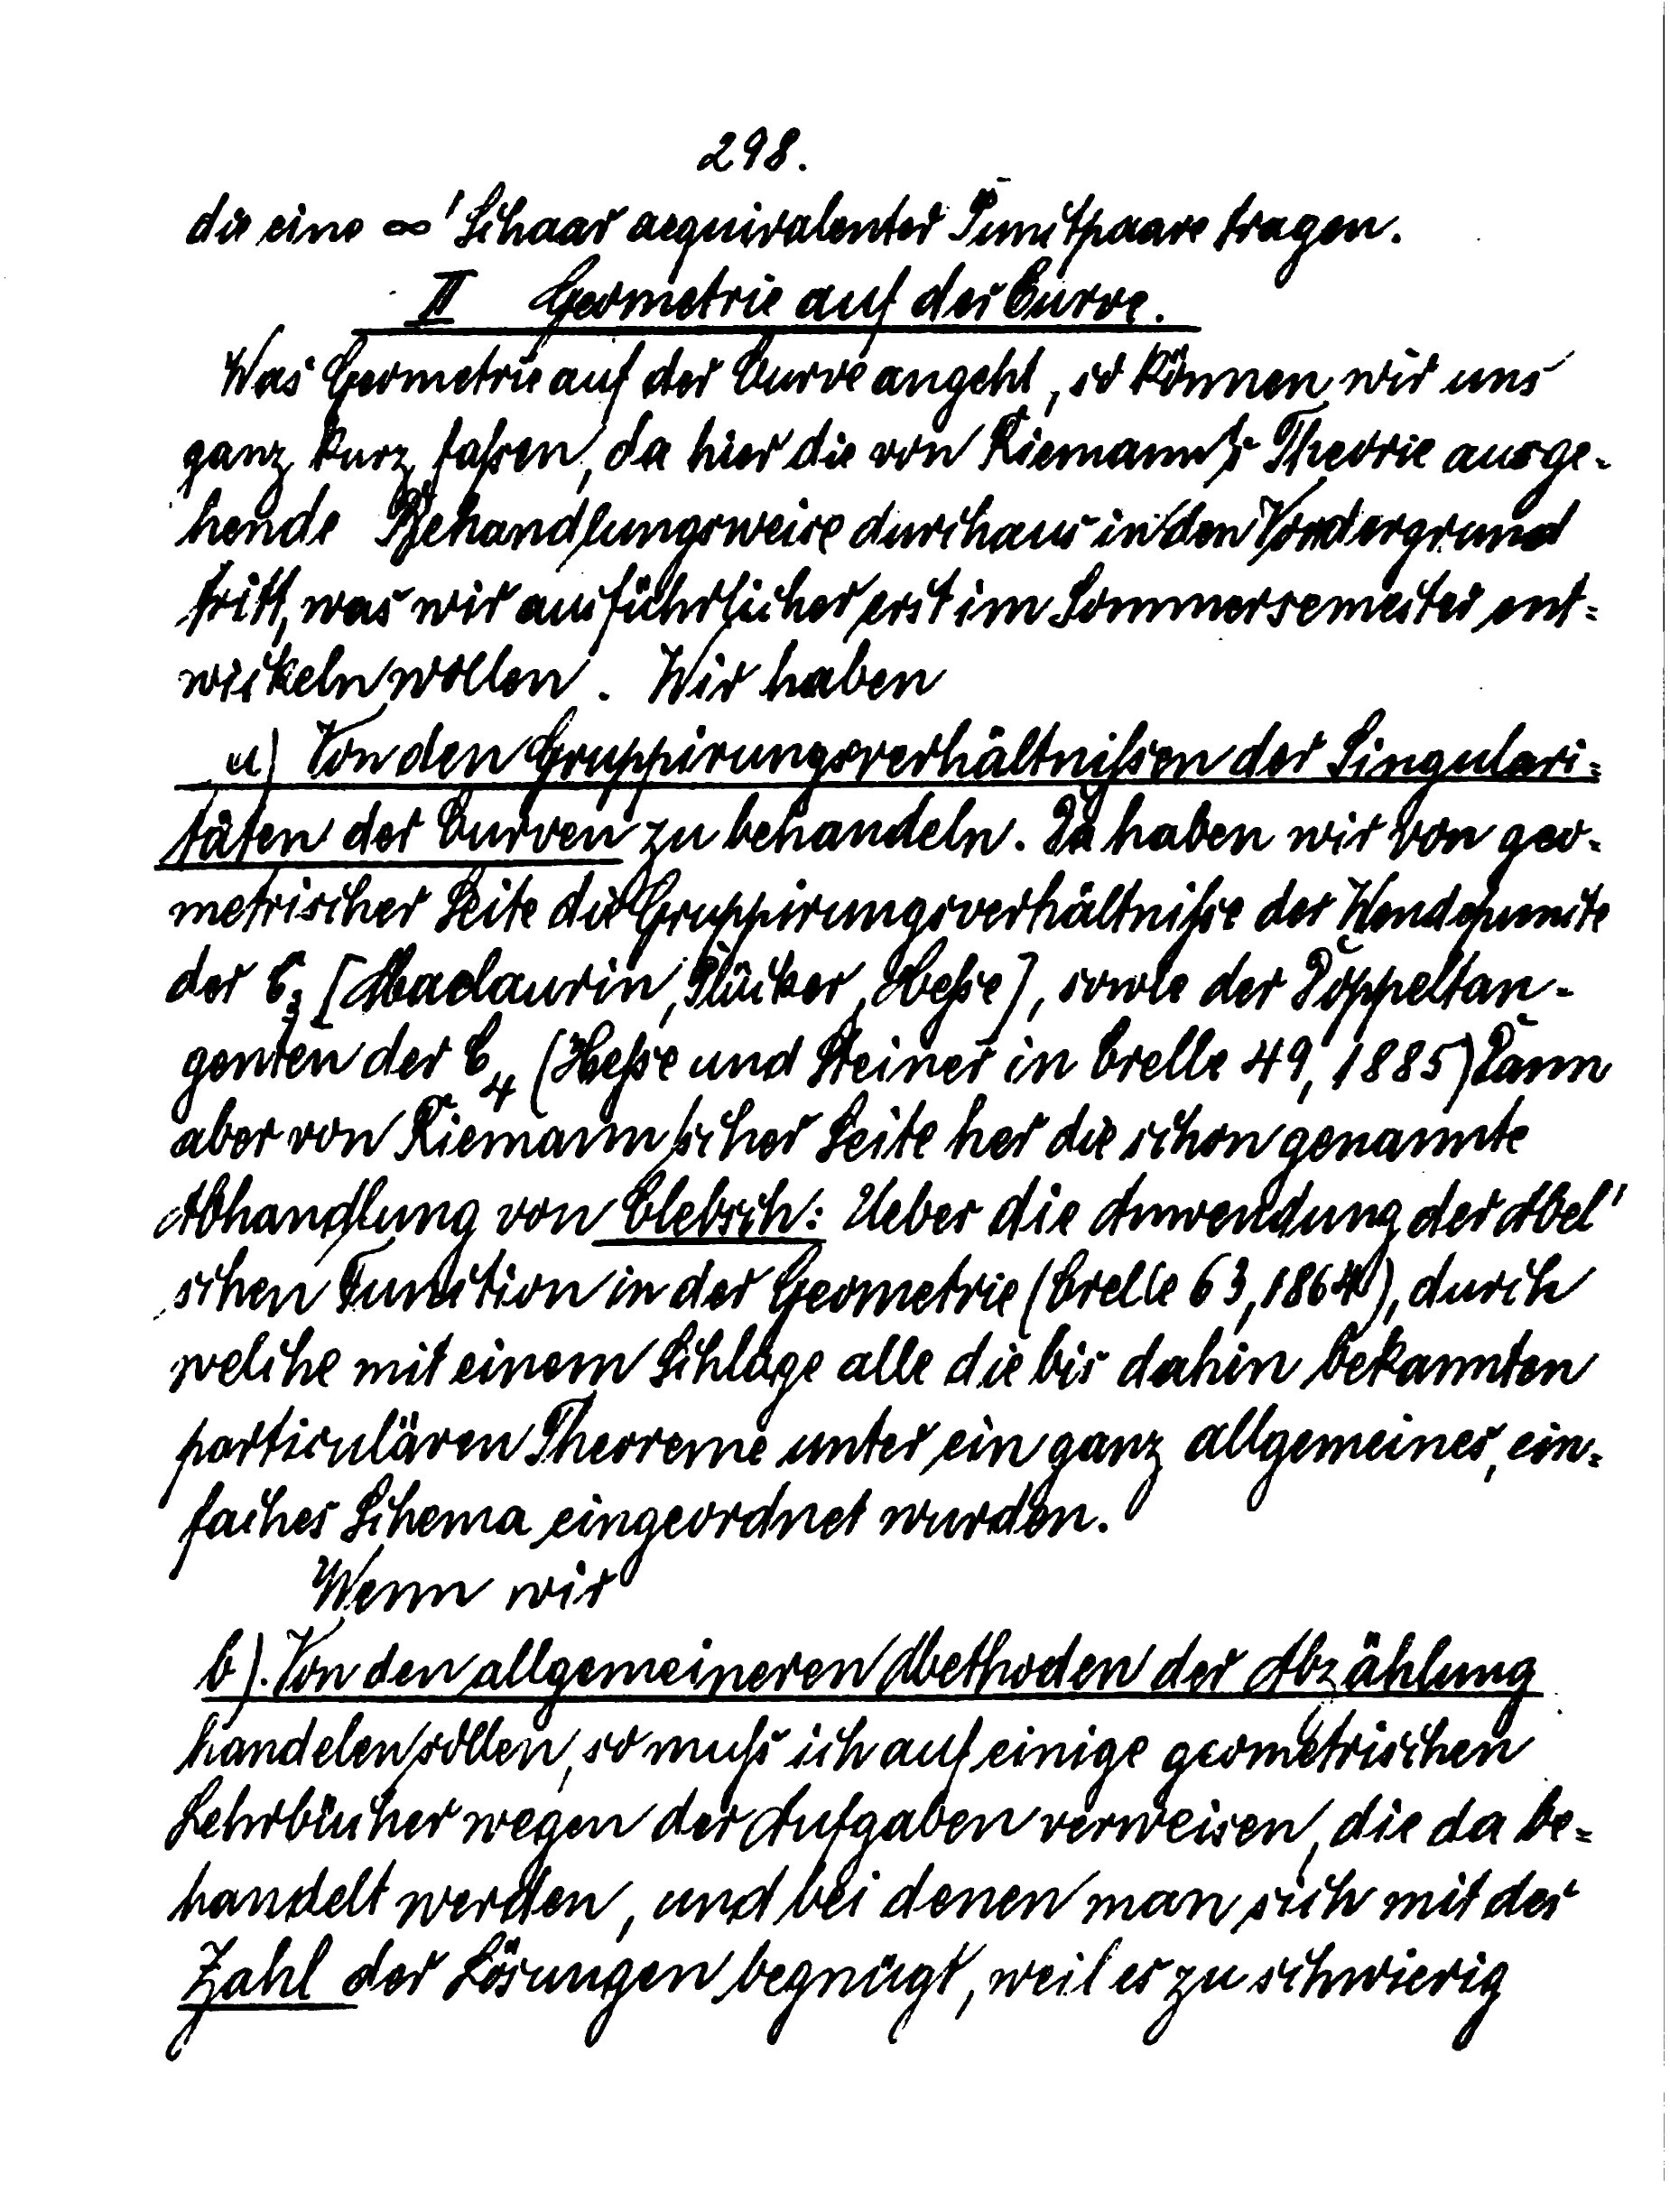 298.
die eine ∞¹ Schaar aequivalenter Punctpaare tragen.
II Geometrie auf der Curve.
Was Geometrie auf der Curve angeht, so können wir uns
ganz kurz faßen, da hier die von Riemann's Theorie ausge-
hende Behandlungsweise durchaus in den Vordergrund
tritt, was wir ausführlicher erst im Sommersemester ent-
wickeln wollen. Wir haben
a) Von den Gruppirungsverhältnißen der Singulari-
täten der Curven zu behandeln. Da haben wir von geo-
metrischer Seite die Gruppirungsverhältniße der Wendepuncte
der C₃ [Maclaurin, Plücker, Heße], sowie der Doppeltan-
genten der C₄ (Heße und Steiner in Crelle 49, 1885) Dann
aber von Riemann'scher Seite her die schon genannte
Abhandlung von Clebsch: Ueber die Anwendung der Abel'
schen Function in der Geometrie (Crelle 63, 1864), durch
welche mit einem Schlage alle die bis dahin bekannten
particulären Theoreme unter ein ganz allgemeines, ein-
faches Schema eingeordnet wurden.
Wenn wir
b). Von den allgemeineren Methoden der Abzählung
handelen sollen, so muß ich auf einige geometrischen
Lehrbücher wegen der Aufgaben verweisen, die da be-
handelt werden, und bei denen man sich mit der
Zahl der Lösungen begnügt, weil es zu schwierig